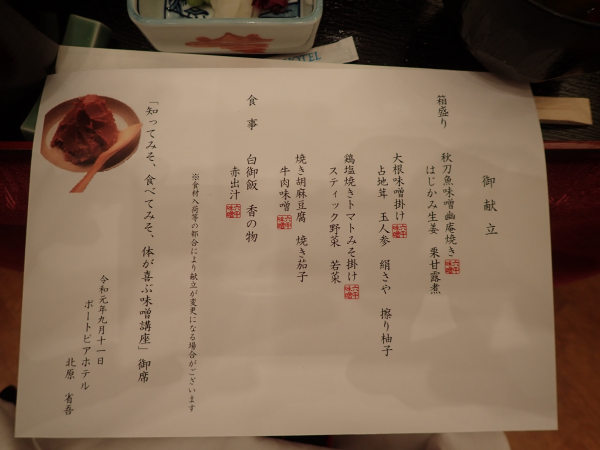 御献立
箱盛り
秋刀魚味噌幽庵焼き 六甲味噌
はじかみ生姜 栗甘露煮
大根味噌掛け 六甲味噌
占地茸 玉人参 絹さや 擦り柚子
鶏塩焼きトマトみそ掛け 六甲味噌
スティック野菜 若菜
焼き胡麻豆腐 焼き茄子
牛肉味噌 六甲味噌
食事
白御飯 香の物
赤出汁 六甲味噌
※食材入荷等の都合により献立が変更になる場合がございます
「知ってみそ、食べてみそ、体が喜ぶ味噌講座」御席
令和元年九月十一日
ポートピアホテル
北原 省吾
HOTEL